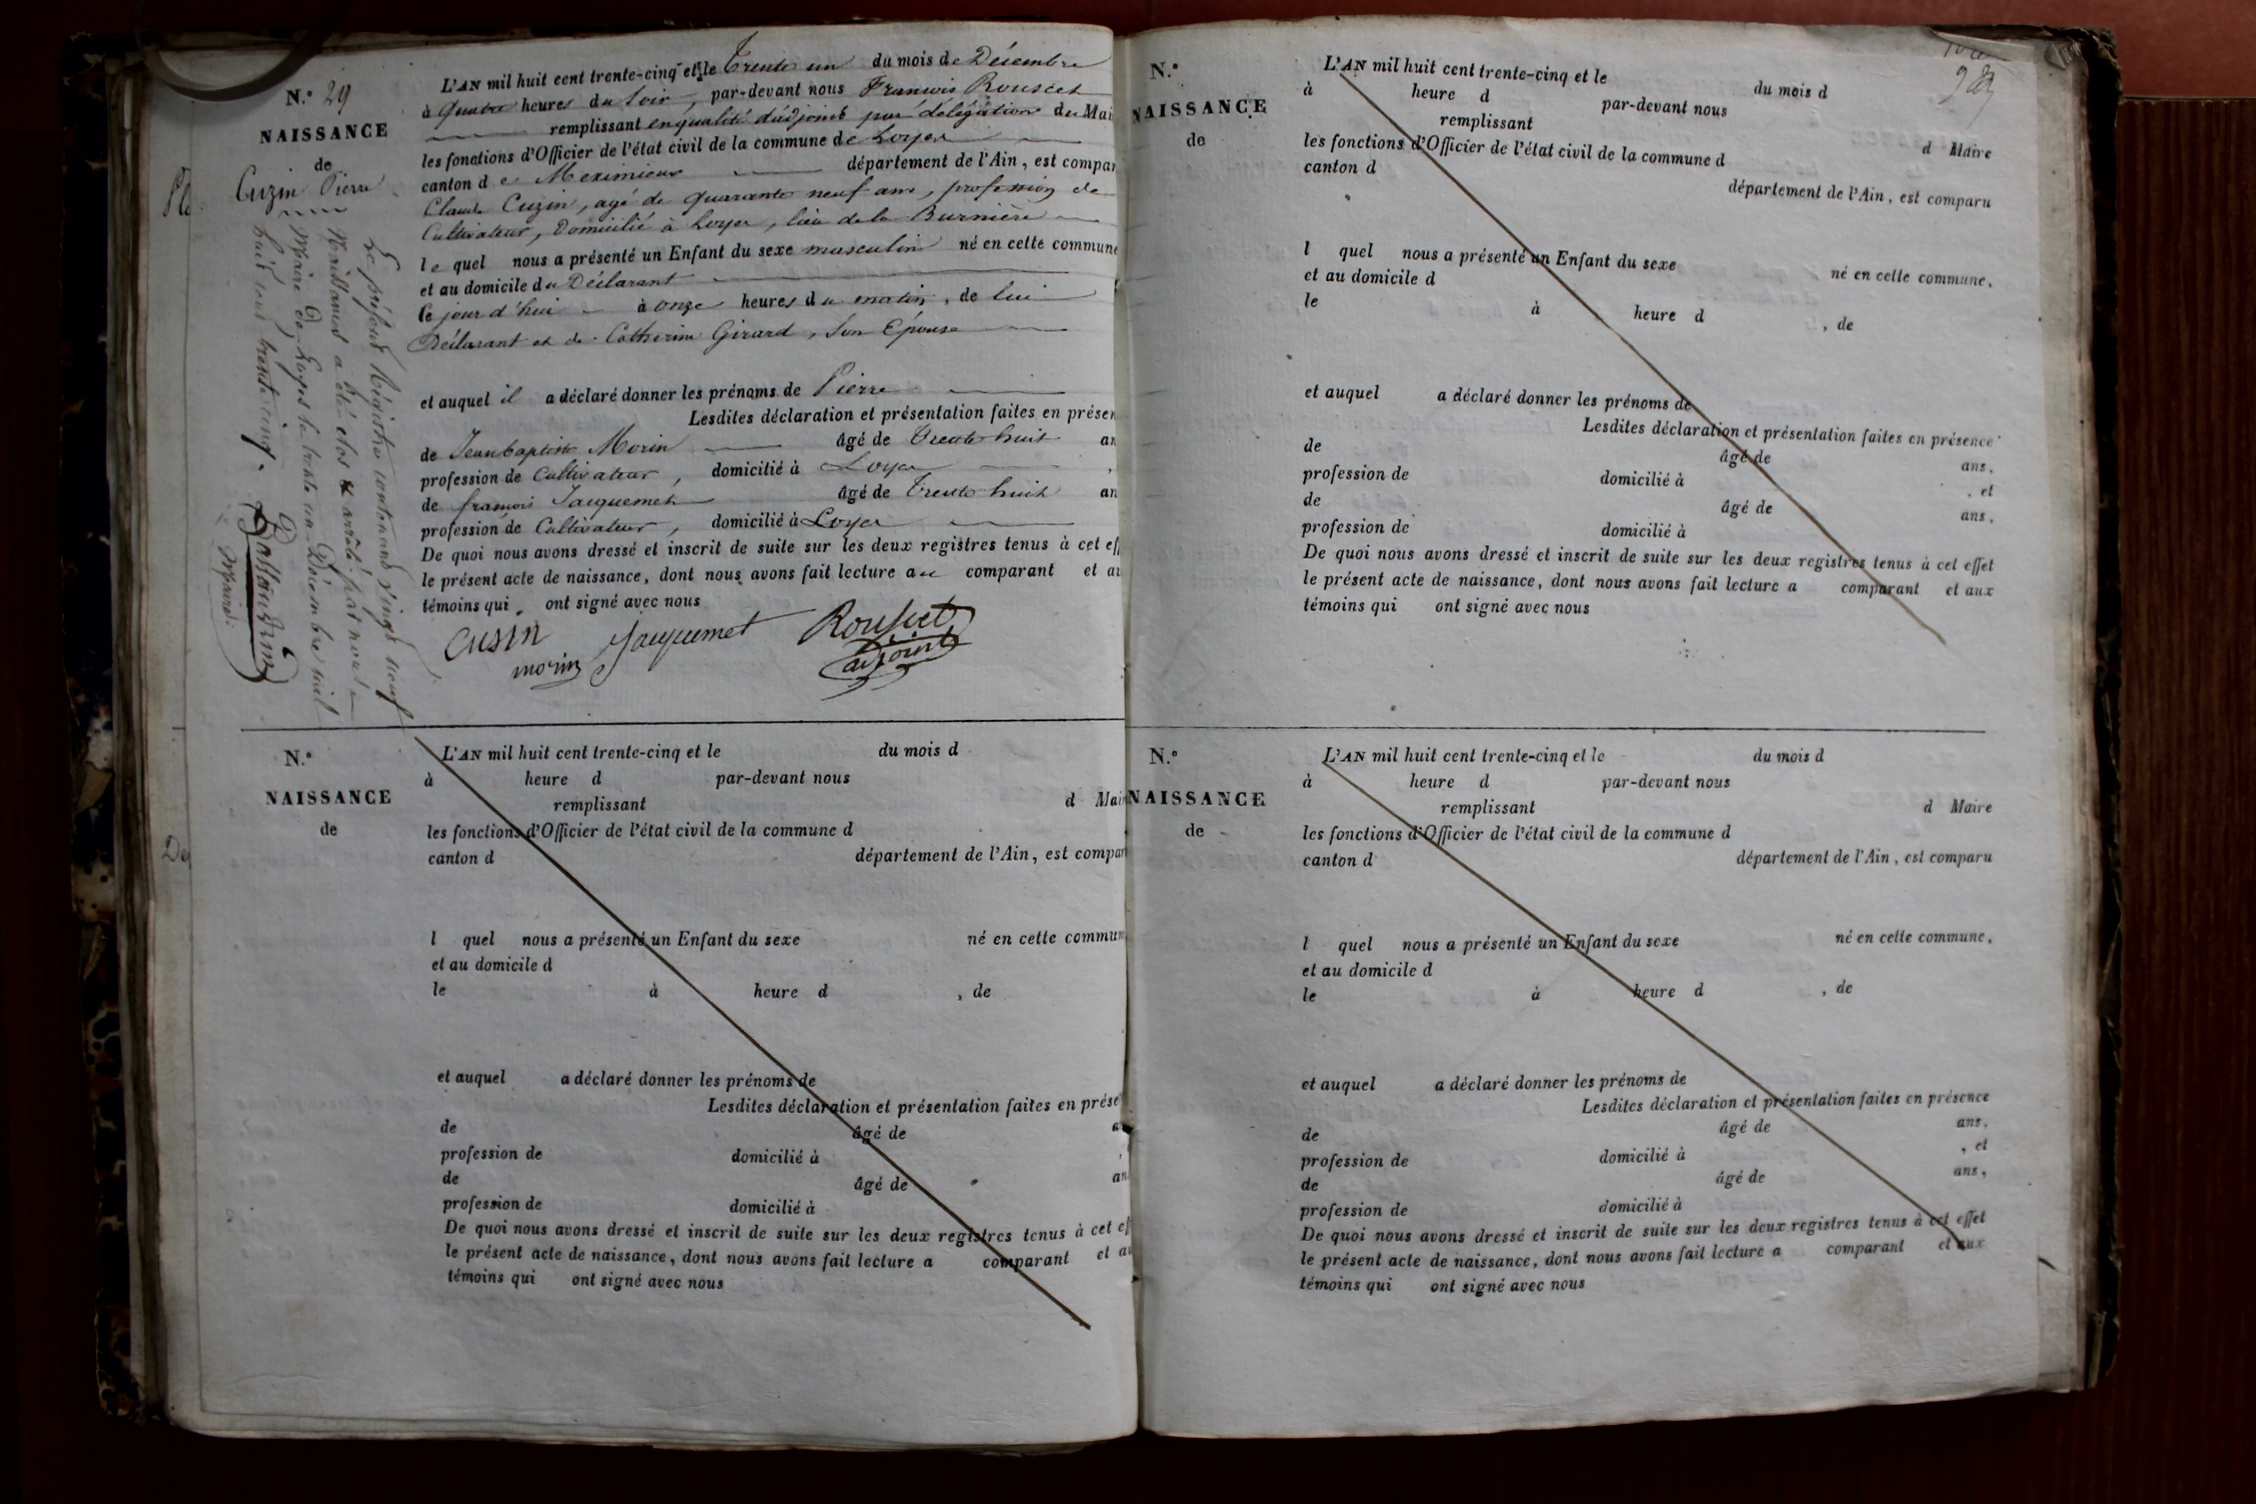 N.° 29
NAISSANCE
de
Cuzin Pierre
Le présent Régistre contenant vingt neuf
Naissances a été clos & arrêté par nous
Maire de Loyes le trente un Décembre mil
huit cent trente cinq.
Maire
L'AN mil huit cent trente-cinq et le Trente un du mois de Désembre
à Quatre heures du Soir, par-devant nous Francois Rousset
remplissant en qualité d'adjoint par délégation du Mai
les fonctions d'Officier de l'état civil de la commune de Loyes
canton de Meximieux département de l'Ain, est compar
Claude Cuzin, agé de quarante neuf ans, profession de
Cultivateur, Domicilié à Loyes, lieu de la Burnière
le quel nous a présenté un Enfant du sexe masculin né en cette commune
et au domicile du Déclarant
le jour d'hui à onze heures du matin, de lui
Déclarant et de Catherine Girard, Son Epouse
et auquel il a déclaré donner les prénoms de Pierre
Lesdites déclaration et présentation faites en présen
de Jean baptiste Morin âgé de Trente huit an
profession de Cultivateur, domicilié à Loyes ,
de francois Jacquemet âgé de Trente huit an
profession de Cultivateur, domicilié à Loyes
De quoi nous avons dressé et inscrit de suite sur les deux registres tenus à cet eff
le présent acte de naissance, dont nous avons fait lecture au comparant et au
témoins qui ont signé avec nous
Cusin Jacquemet Rousset
morin adjoint
Pl
N.°
NAISSANCE
de
De
L'AN mil huit cent trente-cinq et le du mois d
à heure d par-devant nous
remplissant d Mair
les fonctions d'Officier de l'état civil de la commune d
canton d département de l'Ain, est compar
l quel nous a présenté un Enfant du sexe né en cette commun
et au domicile d
le à heure d , de
et auquel a déclaré donner les prénoms de
Lesdites déclaration et présentation faites en prése
de âgé de a
profession de domicilié à ,
de âgé de an
profession de domicilié à
De quoi nous avons dressé et inscrit de suite sur les deux registres tenus à cet ef
le présent acte de naissance, dont nous avons fait lecture a comparant et au
témoins qui ont signé avec nous
N.°
NAISSANCE
de
L'AN mil huit cent trente-cinq et le du mois d
à heure d par-devant nous
remplissant d Maire
les fonctions d'Officier de l'état civil de la commune d
canton d département de l'Ain, est comparu
l quel nous a présenté un Enfant du sexe né en cette commune,
et au domicile d
le à heure d , de
et auquel a déclaré donner les prénoms de
Lesdites déclaration et présentation faites en présence
de âgé de ans,
profession de domicilié à , et
de âgé de ans,
profession de domicilié à
De quoi nous avons dressé et inscrit de suite sur les deux registres tenus à cet effet
le présent acte de naissance, dont nous avons fait lecture a comparant et aux
témoins qui ont signé avec nous
N.°
NAISSANCE
de
L'AN mil huit cent trente-cinq et le du mois d
à heure d par-devant nous
remplissant d Maire
les fonctions d'Officier de l'état civil de la commune d
canton d département de l'Ain, est comparu
l quel nous a présenté un Enfant du sexe né en cette commune,
et au domicile d
le à heure d , de
et auquel a déclaré donner les prénoms de
Lesdites déclaration et présentation faites en présence
de âgé de ans,
profession de domicilié à , et
de âgé de ans,
profession de domicilié à
De quoi nous avons dressé et inscrit de suite sur les deux registres tenus à cet effet
le présent acte de naissance, dont nous avons fait lecture a comparant et aux
témoins qui ont signé avec nous